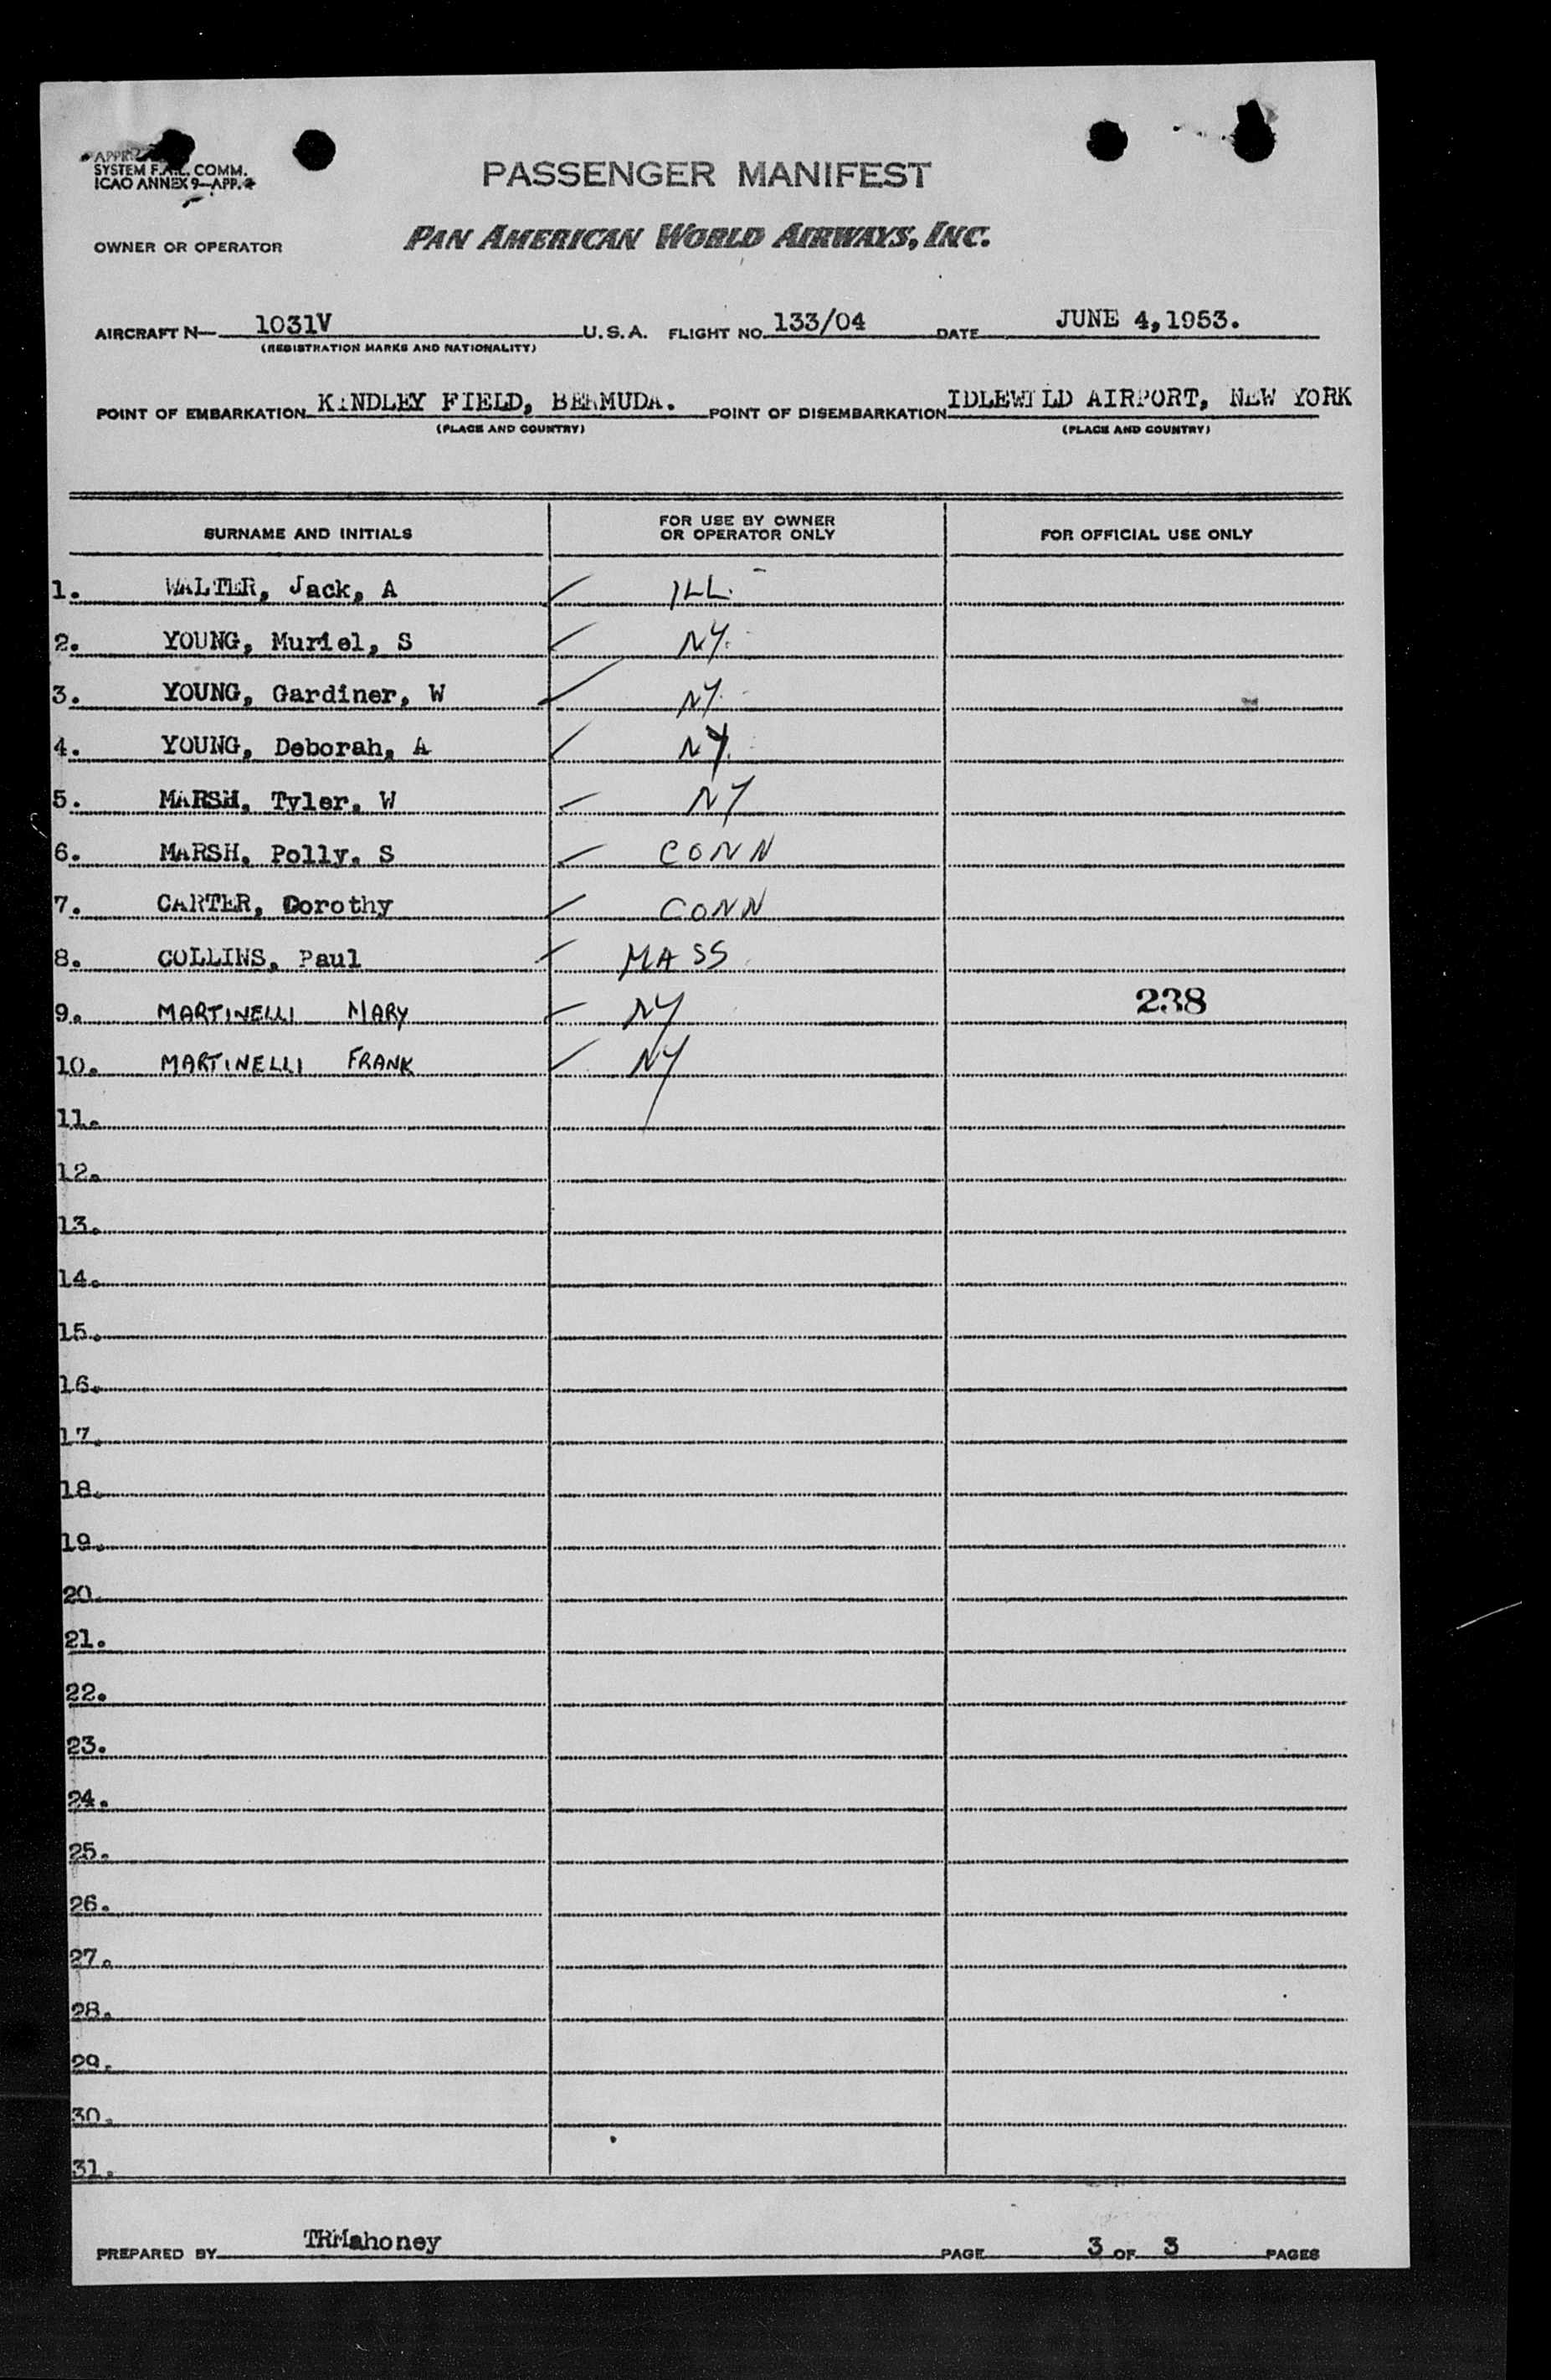 SYSTEM F.A.L. COMM.
ICAO ANNEX 9—APP.
PASSENGER MANIFEST
OWNER OR OPERATOR PAN AMERICAN WORLD AIRWAYS, INC.
AIRCRAFT N— 1031V U.S.A. FLIGHT NO. 133/04 DATE JUNE 4, 1953.
(REGISTRATION MARKS AND NATIONALITY)
POINT OF EMBARKATION KINDLEY FIELD, BERMUDA. POINT OF DISEMBARKATION IDLEWILD AIRPORT, NEW YORK
(PLACE AND COUNTRY) (PLACE AND COUNTRY)
SURNAME AND INITIALS FOR USE BY OWNER OR OPERATOR ONLY FOR OFFICIAL USE ONLY
1. WALTER, Jack, A ✓ ILL.
2. YOUNG, Muriel, S ✓ NY.
3. YOUNG, Gardiner, W ✓ NY.
4. YOUNG, Deborah, A ✓ NY.
5. MARSH, Tyler, W ✓ NY
6. MARSH, Polly, S ✓ CONN
7. CARTER, Dorothy ✓ CONN
8. COLLINS, Paul ✓ MASS
9. MARTINELLI MARY ✓ NY 238
10. MARTINELLI FRANK ✓ NY
11.
12.
13.
14.
15.
16.
17.
18.
19.
20.
21.
22.
23.
24.
25.
26.
27.
28.
29.
30.
31.
PREPARED BY TRMahoney PAGE 3 OF 3 PAGES